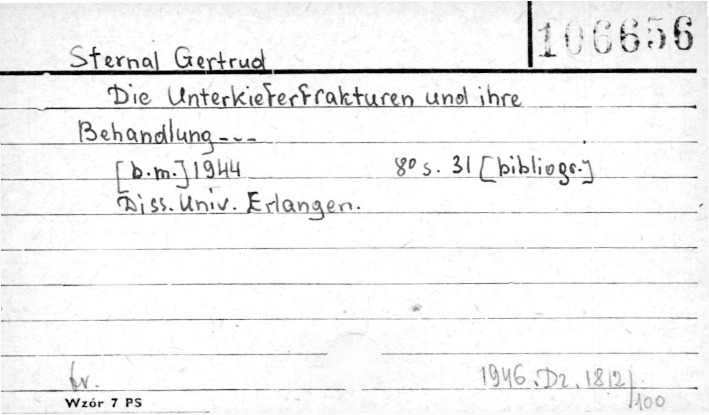 106656
Sternal Gertrud
Die Unterkieferfrakturen und ihre
Behandlung---
[b.m.] 1944 8° s. 31 [bibliogr.]
Diss. Univ. Erlangen.
fr. 1946. Dz. 1812/
Wzór 7 PS /100